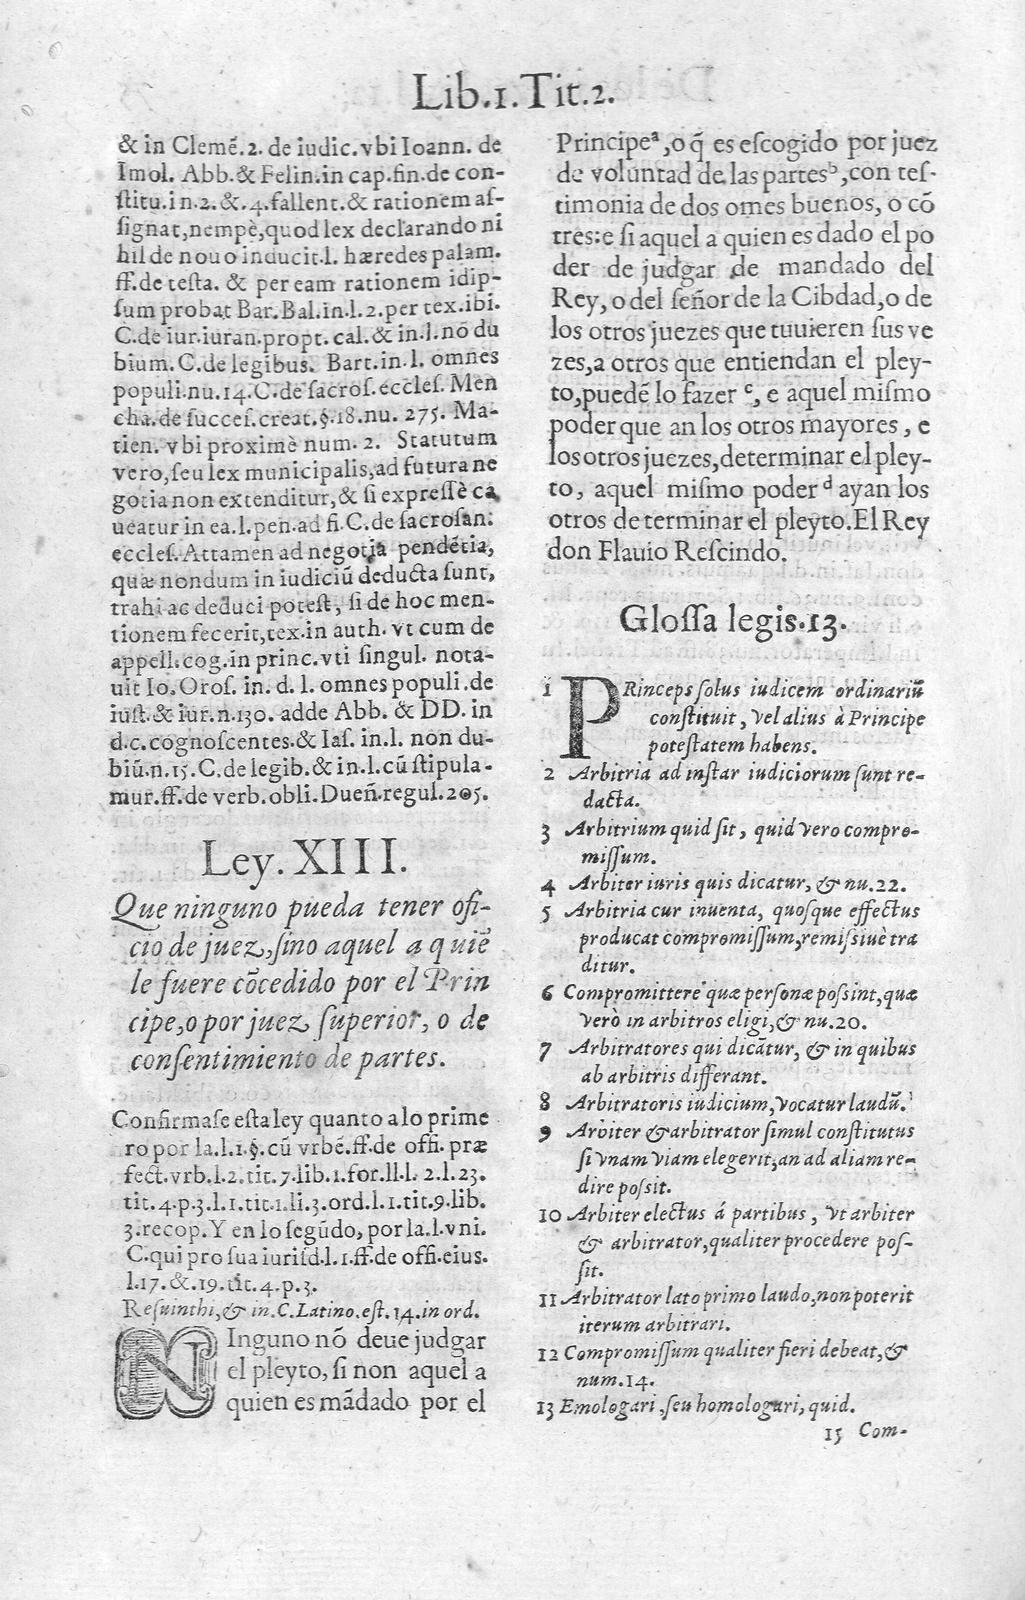 Lib.1.Tit.2.
& in Clemẽ.2. de iudic.vbi Ioann. de
Imol. Abb.& Felin.in cap.fin.de con-
ſtitu.in.2.&.4.fallent.& rationem aſ-
ſignat,nempè,quod lex declarando ni
hil de nouo inducit.l. hæredes palam.
ff.de teſta. & per eam rationem idip-
ſum probat Bar. Bal.in.l.2.per tex.ibi.
C.de iur.iuran.propt. cal.& in.l.nõ du
bium.C.de legibus. Bart.in.l. omnes
populi.nu.14.C.de ſacroſ.eccleſ. Men
cha.de ſucceſ.creat.§.18.nu. 275. Ma-
tien. vbi proximè num. 2. Statutum
vero,ſeu lex municipalis,ad futura ne
gotia non extenditur,& ſi expreſſè ca
ueatur in ea.l.pen.ad fi.C.de ſacroſan:
eccleſ. Attamen ad negotia pendẽtia,
quæ nondum in iudiciũ deducta ſunt,
trahi ac deduci poteſt, ſi de hoc men-
tionem fecerit,tex.in auth. vt cum de
appell.cog.in princ.vti ſingul. nota-
uit Io. Oroſ. in. d. l. omnes populi.de
iuſt.& iur.n.130. adde Abb. & DD. in
d.c.cognoſcentes.& Iaſ. in.l. non du-
biũ.n.15.C.de legib.& in.l.cũ ſtipula-
mur.ff.de verb.obli.Dueñ.regul.205.
Ley. XIII.
Que ninguno pueda tener ofi-
cio de juez,ſino aquel a quiẽ
le fuere cõcedido por el Prin
cipe,o por juez ſuperior, o de
conſentimiento de partes.
Confirmaſe eſta ley quanto a lo prime
ro por la.l.1.§.cũ vrbẽ.ff.de offi. præ
fect.vrb.l.2.tit.7.lib.1.for.ll.l. 2.l.23.
tit.4.p.3.l.1.tit.1.li.3.ord.l.1.tit.9.lib.
3.recop. Y en lo ſegũdo, por la.l.vni.
C.qui pro sua iuriſd.l.1.ff.de offi.eius.
l.17.&.19.tit.4.p.3.
Reſuinthi,& in.C.Latino.eſt.14.in ord.
NInguno nõ deue judgar
el pleyto, ſi non aquel a
quien es mãdado por el
Principeᵃ,o q̃ es eſcogido por juez
de voluntad de las partesᵇ,con teſ-
timonia de dos omes buenos, o cõ
tres:e ſi aquel a quien es dado el po
der de judgar de mandado del
Rey, o del ſeñor de la Cibdad,o de
los otros juezes que tuuieren ſus ve
zes,a otros que entiendan el pley-
to,puedẽ lo fazer ᶜ, e aquel miſmo
poder que an los otros mayores, e
los otros juezes,determinar el pley-
to, aquel miſmo poder ᵈ ayan los
otros de terminar el pleyto.El Rey
don Flauio Reſcindo.
Gloſſa legis.13.
1 PRinceps ſolus iudicem ordinariũ
conſtituit, vel alius à Principe
poteſtatem habens.
2 Arbitria ad inſtar iudiciorum ſunt re-
dacta.
3 Arbitrium quid ſit, quid vero compro-
miſſum.
4 Arbiter iuris quis dicatur, & nu.22.
5 Arbitria cur inuenta, quoſque effectus
producat compromiſſum,remiſsiuè tra
ditur.
6 Compromittere quæ perſonæ poſsint,quæ
verò in arbitros eligi,& nu.20.
7 Arbitratores qui dicãtur, & in quibus
ab arbitris differant.
8 Arbitratoris iudicium,vocatur laudũ.
9 Arbiter & arbitrator ſimul conſtitutus
ſi vnam viam elegerit,an ad aliam re-
dire poſsit.
10 Arbiter electus á partibus, vt arbiter
& arbitrator,qualiter procedere poſ-
ſit.
11 Arbitrator lato primo laudo,non poterit
iterum arbitrari.
12 Compromiſſum qualiter fieri debeat,&
num.14.
13 Emologari, ſeu homologari, quid.
15 Com-